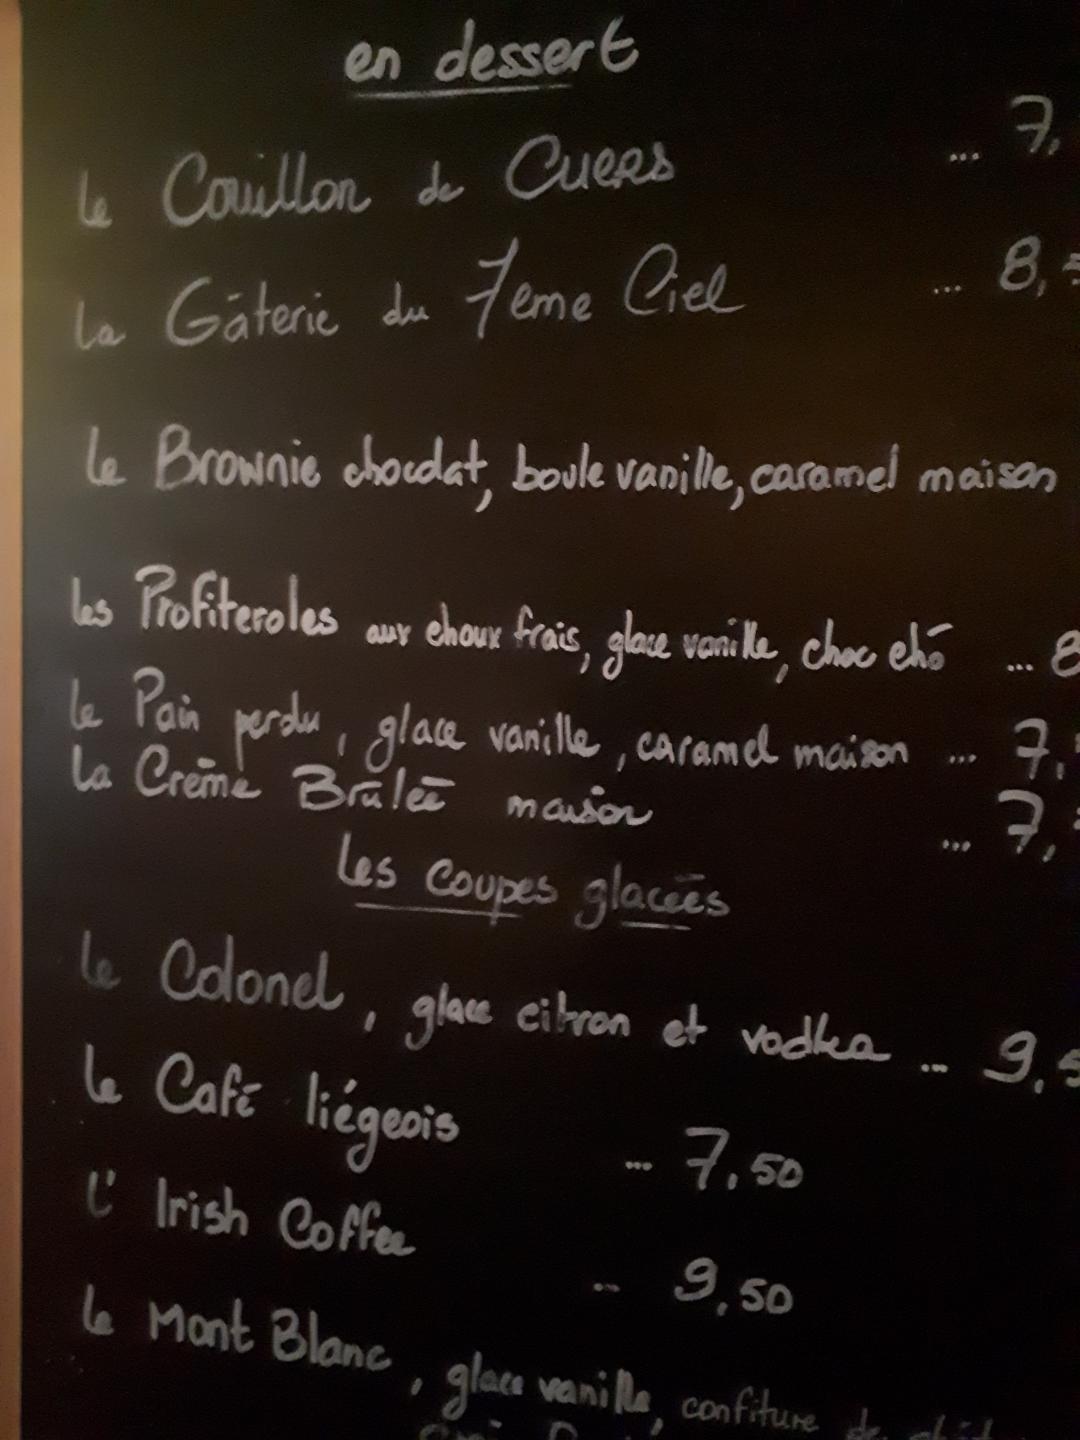 en dessert
le Couillon de Cuers ... 7,
La Gâterie du 7eme Ciel ... 8,
le Brownie chocolat, boule vanille, caramel maison
les Profiteroles aux choux frais, glace vanille, choc chô ... 8
le Pain perdu, glace vanille, caramel maison ... 7,
La Crème Brûlée maison ... 7,
Les coupes glacées
le Colonel, glace citron et vodka ... 9,5
le Café liégeois ... 7,50
L'Irish Coffee ... 9,50
le Mont Blanc, glace vanille, confiture de